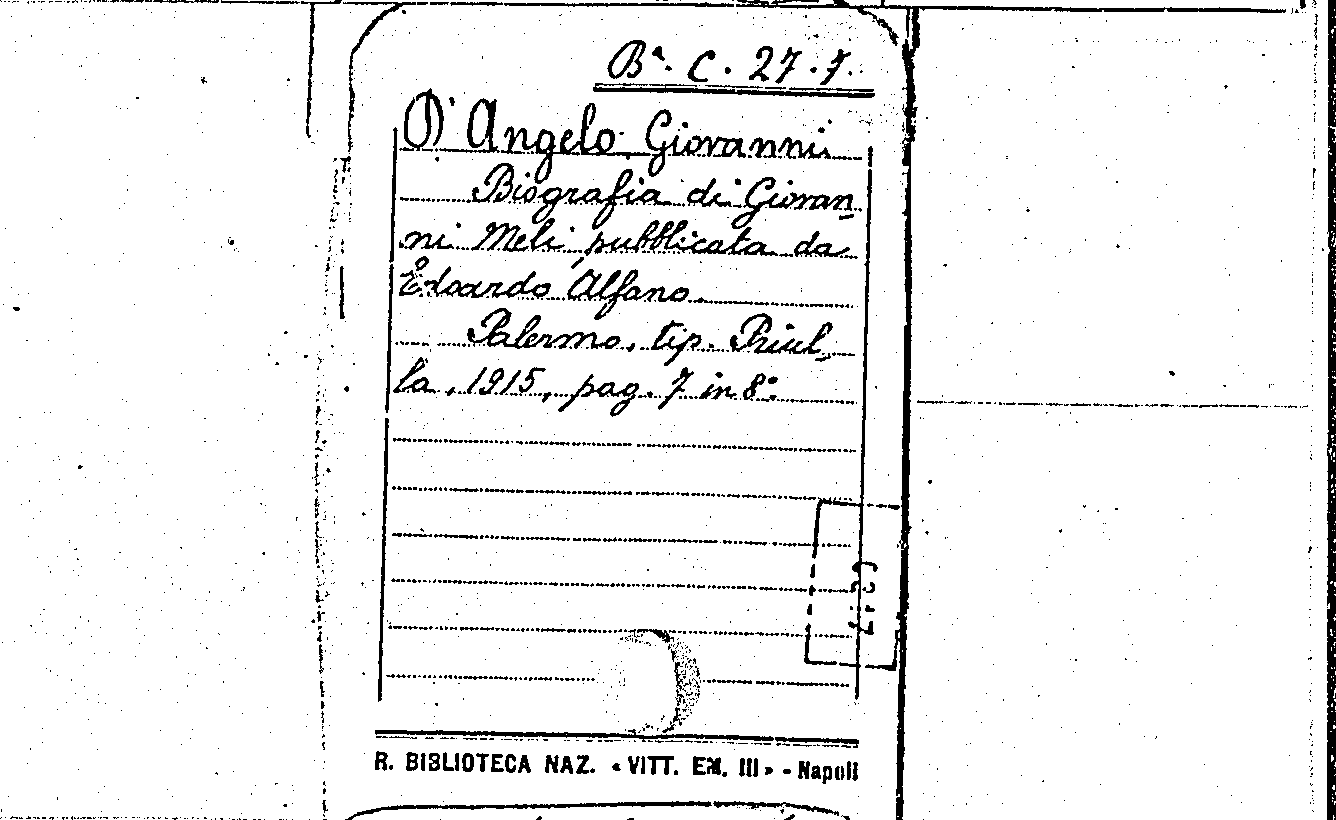 Bª. C. 27.7.
D'Angelo Giovanni
Biografia di Giovan
ni Meli, pubblicata da
Edoardo Alfano.
Palermo, tip. Priul
la, 1915, pag. 7 in 8º
R. BIBLIOTECA NAZ. «VITT. EM. III» - Napoli